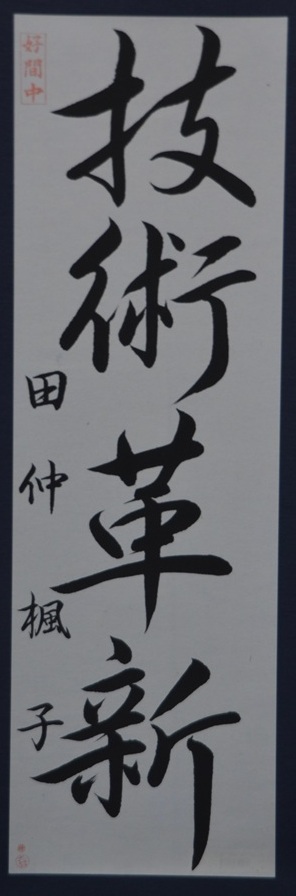 技術革新
田仲楓子
好間中